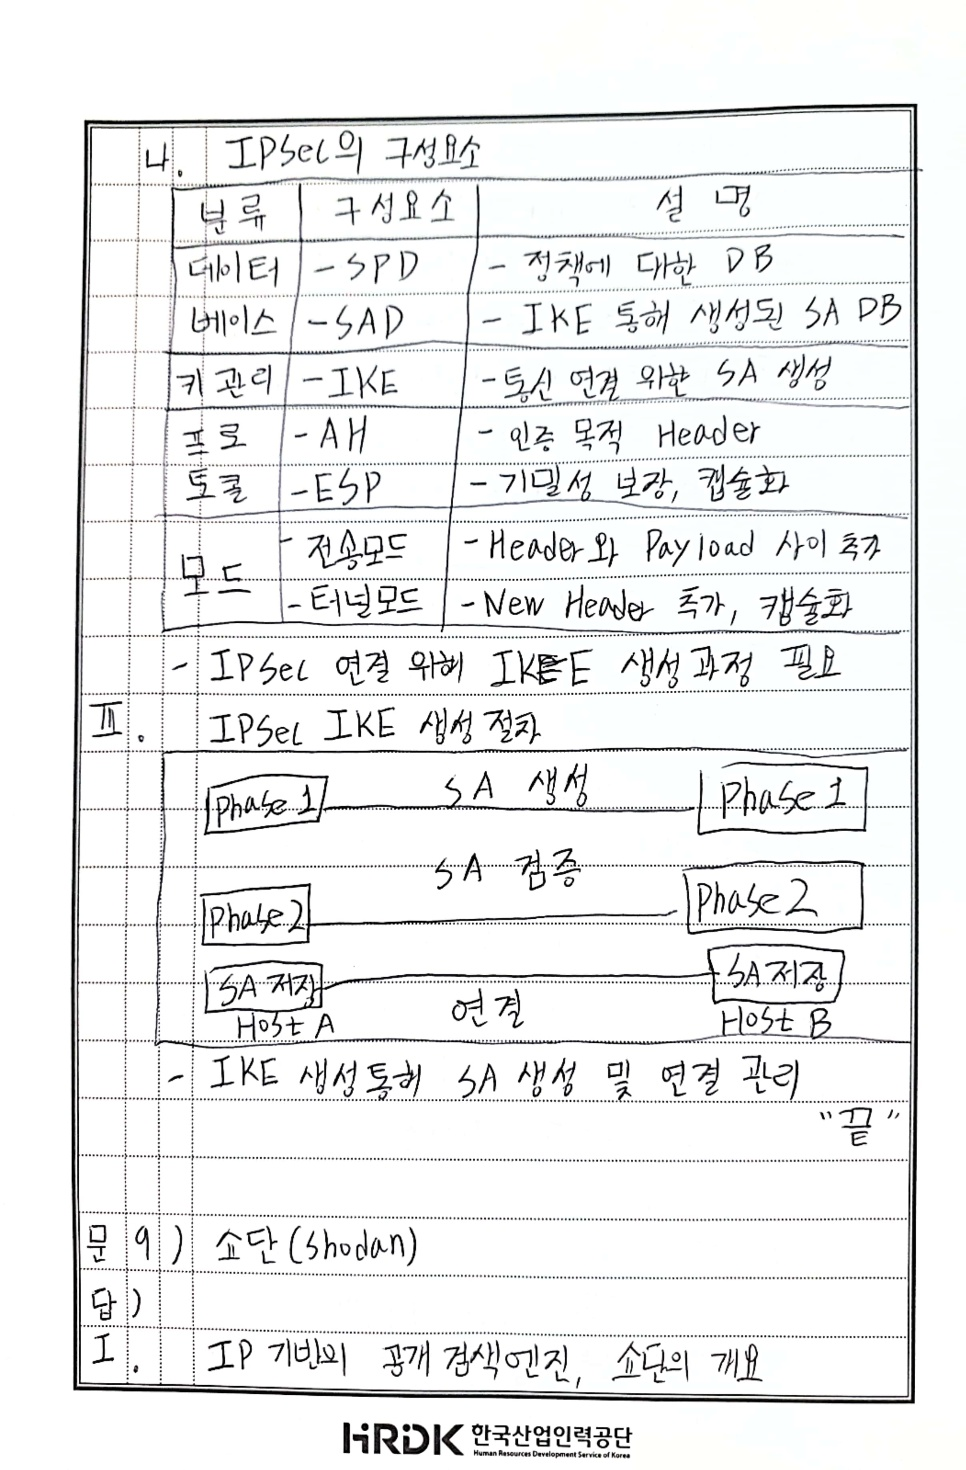 나. IPSec의 구성요소
분류 구성요소 설명
데이터 - SPD - 정책에 대한 DB
베이스 - SAD - IKE 통해 생성된 SA DB
키 관리 - IKE - 통신 연결 위한 SA 생성
프로 - AH - 인증 목적 Header
토콜 - ESP - 기밀성 보장, 캡슐화
모드 - 전송모드 - Header와 Payload 사이 추가
- 터널모드 - New Header 추가, 캡슐화
- IPSec 연결 위해 IKE 생성과정 필요
Ⅲ. IPSec IKE 생성 절차
Phase 1 SA 생성 Phase 1
SA 검증
Phase 2 Phase 2
SA 저장 SA 저장
Host A 연결 Host B
- IKE 생성통해 SA 생성 및 연결 관리
"끝"
문 9) 쇼단(Shodan)
답)
I. IP 기반의 공개 검색엔진, 쇼단의 개요
HRDK 한국산업인력공단
Human Resources Development Service of Korea